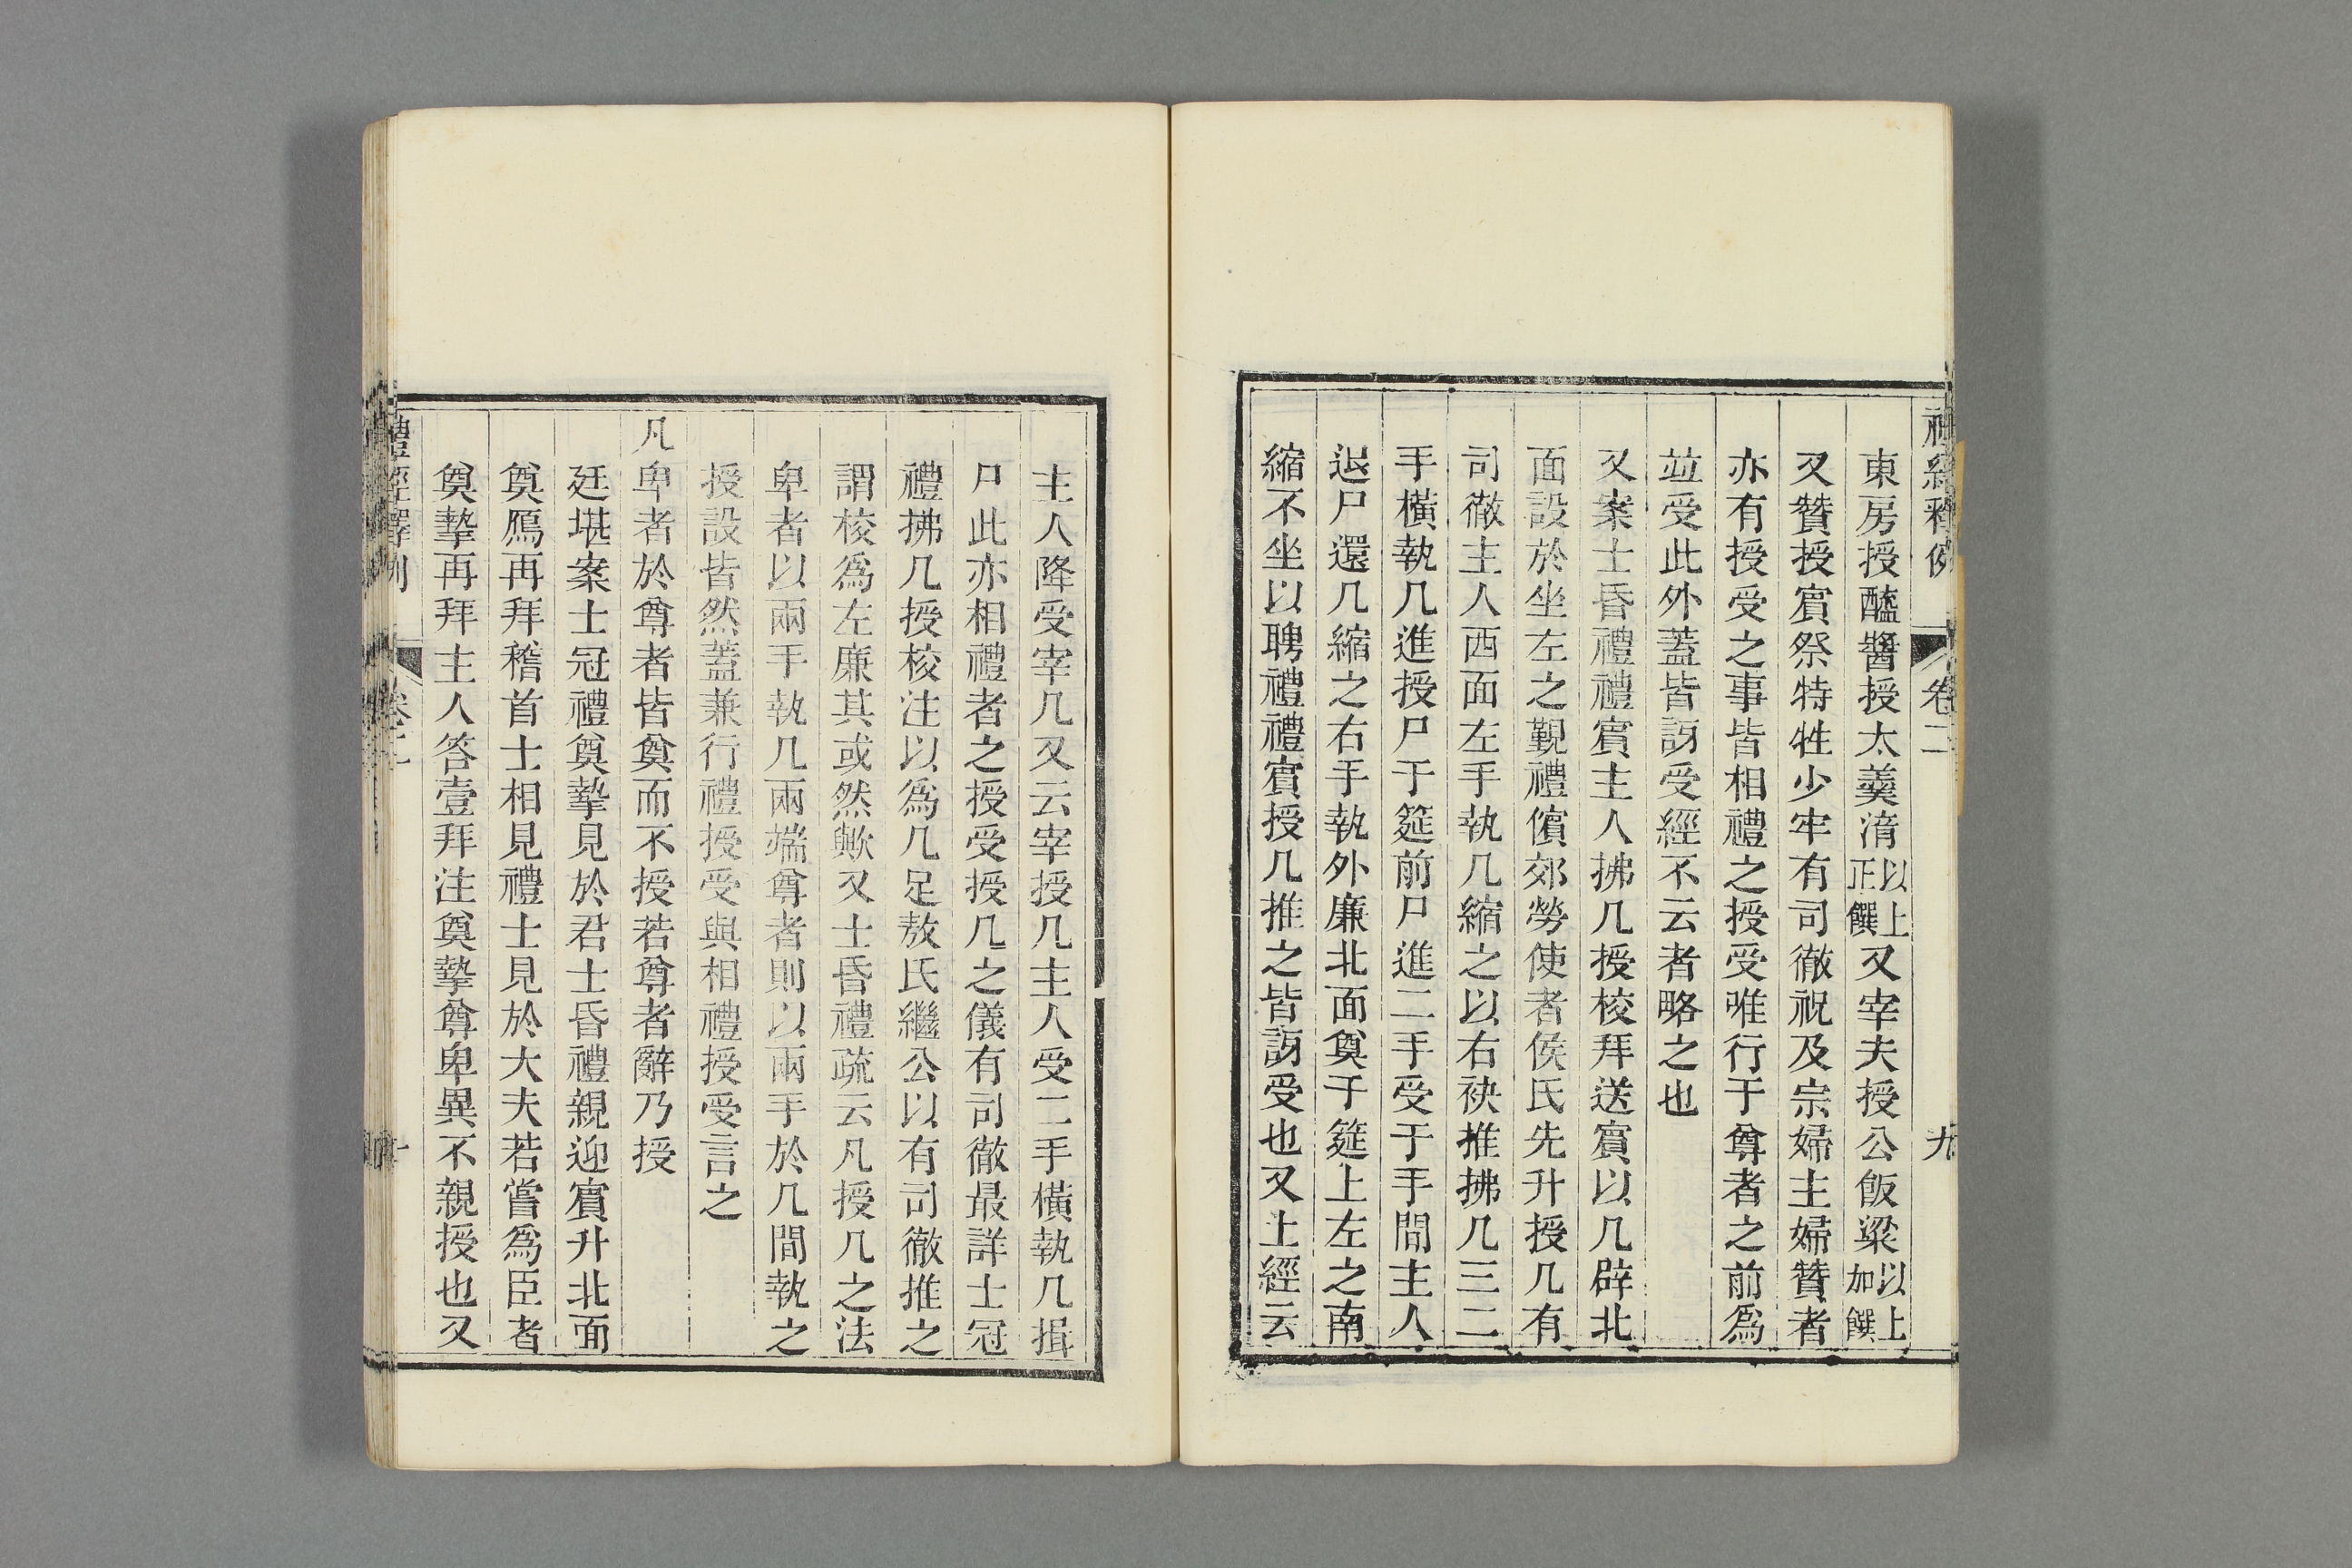 禮經釋例 卷二 九
東房授醯醬授太羹湆以上正饌又宰夫授公飯粱以上加饌
又贊授賓祭特牲少牢有司徹祝及宗婦主婦贊者
亦有授受之事皆相禮之授受唯行于尊者之前爲
竝受此外蓋皆訝受經不云者略之也
又案士昏禮禮賓主人拂几授校拜送賓以几辟北
面設於坐左之覲禮儐郊勞使者侯氏先升授几有
司徹主人西面左手執几縮之以右袂推拂几三二
手橫執几進授尸于筵前尸進二手受于手間主人
退尸還几縮之右手執外廉北面奠于筵上左之南
縮不坐以聘禮禮賓授几推之皆訝受也又上經云
主人降受宰几又云宰授几主人受二手橫執几揖
尸此亦相禮者之授受授几之儀有司徹最詳士冠
禮拂几授校注以爲几足敖氏繼公以有司徹推之
謂校爲左廉其或然歟又士昏禮疏云凡授几之法
卑者以兩手執几兩端尊者則以兩手於几間執之
授設皆然蓋兼行禮授受與相禮授受言之
凡卑者於尊者皆奠而不授若尊者辭乃授
廷堪案士冠禮奠摯見於君士昏禮親迎賓升北面
奠鴈再拜稽首士相見禮士見於大夫若嘗爲臣者
奠摯再拜主人答壹拜注奠摯尊卑異不親授也又
禮經釋例 卷二 十